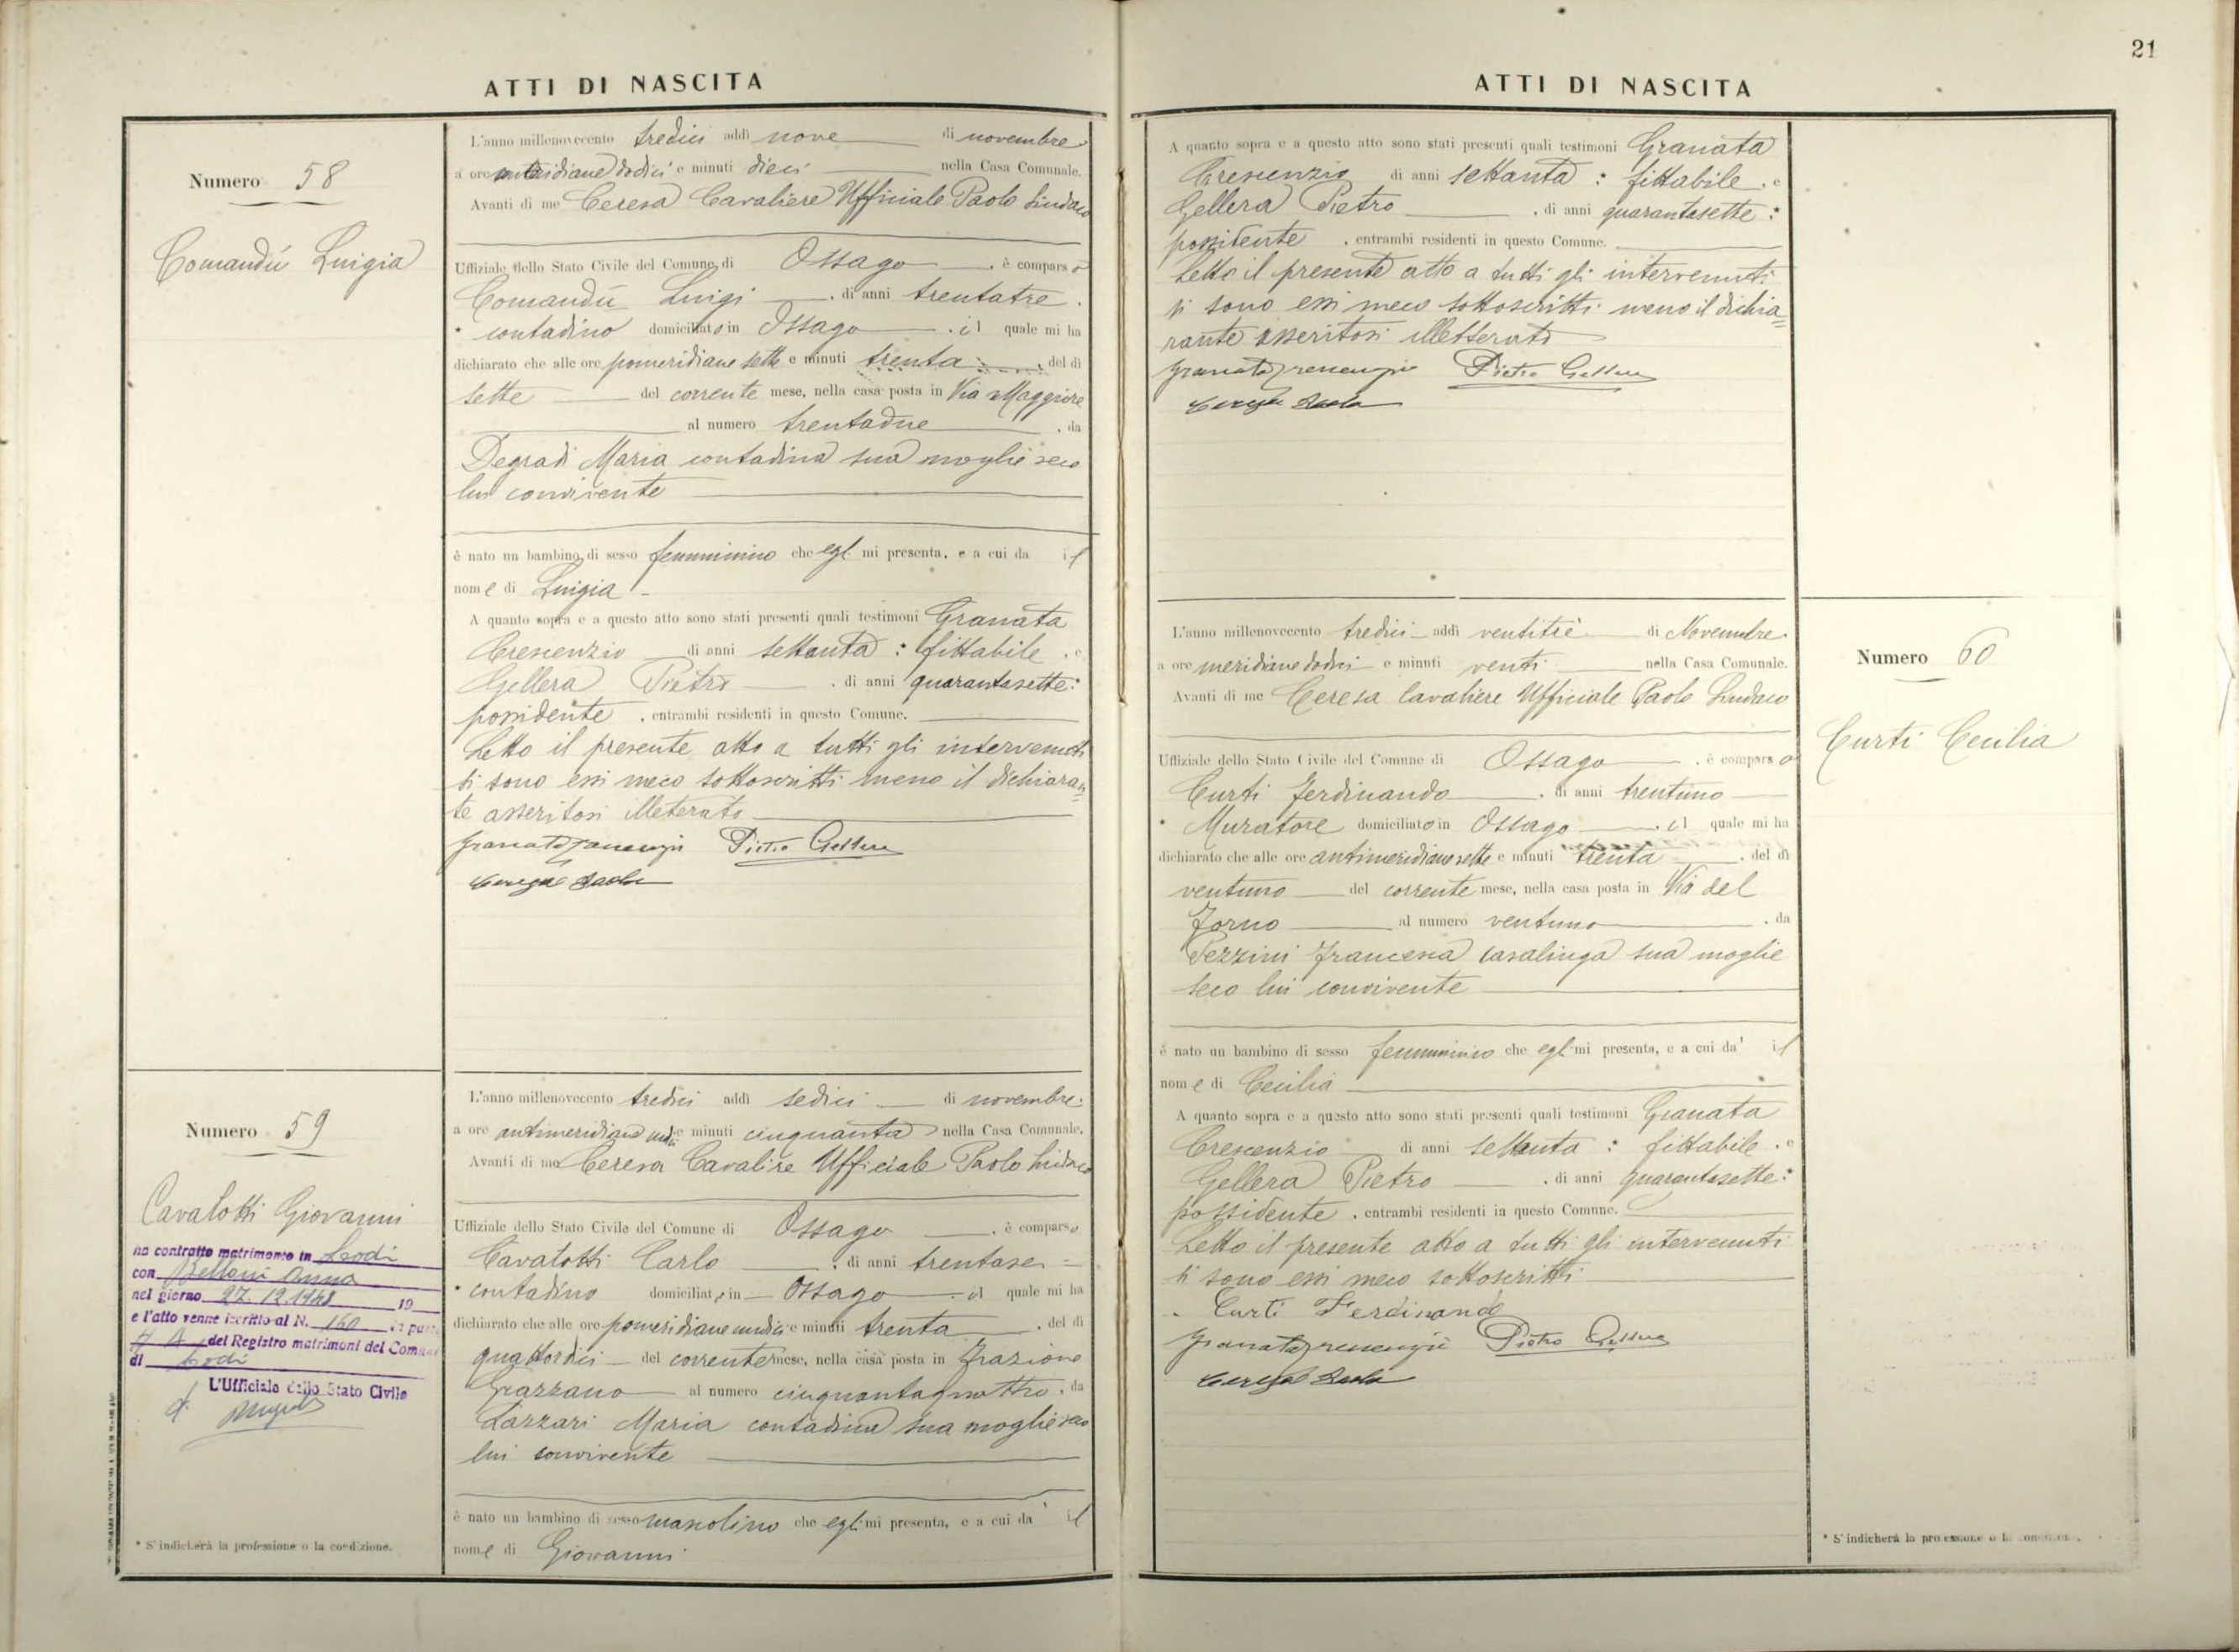 ATTI DI NASCITA
Numero 58
Comandù Luigia
L'anno millenovecento tredici addì nove di novembre
a ore meridiane dodici e minuti dieci nella Casa Comunale.
Avanti di me Ceresa Cavaliere Ufficiale Paolo Sindaco
Uffiziale dello Stato Civile del Comune di Ossago , è comparso
Comandù Luigi , di anni trentatre ,
* contadino domiciliato in Ossago , il quale mi ha
dichiarato che alle ore pomeridiane sette e minuti trenta , del dì
sette del corrente mese, nella casa posta in Via Maggiore
al numero trentadue , da
Degradi Maria contadina sua moglie seco
lui convivente
è nato un bambino di sesso femminino che egli mi presenta, e a cui da il
nome di Luigia
A quanto sopra e a questo atto sono stati presenti quali testimoni Granata
Crescenzio di anni settanta : fittabile , e
Gellera Pietro , di anni quarantasette :
possidente , entrambi residenti in questo Comune.
Letto il presente atto a tutti gli intervenuti
si sono essi meco sottoscritti meno il dichiaran=
te asseritosi illeterato
Granata Crescenzio Pietro Gellera
Ceresa Paolo
Numero 59
Cavalotti Giovanni
ha contratto matrimonio in Lodi
con Belloni Anna
nel giorno 27.12.1948 19
e l'atto venne iscritto al N. 160 in parte
II A del Registro matrimoni del Comune
di Lodi
L'Ufficiale dello Stato Civile
L'anno millenovecento tredici addì sedici di novembre
a ore antimeridiane undici e minuti cinquanta nella Casa Comunale.
Avanti di me Ceresa Cavaliere Ufficiale Paolo Sindaco
Uffiziale dello Stato Civile del Comune di Ossago , è comparso
Cavalotti Carlo , di anni trentasei =
* contadino domiciliato in Ossago , il quale mi ha
dichiarato che alle ore pomeridiane undici e minuti trenta , del dì
quattordici del corrente mese, nella casa posta in Frazione
Grazzano al numero cinquantaquattro , da
Lazzari Maria contadina sua moglie seco
lui convivente
è nato un bambino di sesso mascolino che egli mi presenta, e a cui da il
nome di Giovanni
* S'indicherà la professione o la condizione.
21
ATTI DI NASCITA
A quanto sopra e a questo atto sono stati presenti quali testimoni Granata
Crescenzio di anni settanta : fittabile , e
Gellera Pietro , di anni quarantasette :
possidente , entrambi residenti in questo Comune.
Letto il presente atto a tutti gli intervenuti
si sono essi meco sottoscritti meno il dichia=
rante asseritosi illetterato
Granata Crescenzio Pietro Gellera
Ceresa Paolo
Numero 60
Curti Cecilia
L'anno millenovecento tredici addì ventitrè di Novembre
a ore meridiane dodici e minuti venti nella Casa Comunale.
Avanti di me Ceresa Cavaliere Ufficiale Paolo Sindaco
Uffiziale dello Stato Civile del Comune di Ossago , è comparso
Curti Ferdinando , di anni trentuno
* Muratore domiciliato in Ossago , il quale mi ha
dichiarato che alle ore antimeridiane sette e minuti trenta , del dì
ventuno del corrente mese, nella casa posta in Via del
Forno al numero ventuno , da
Pezzini Francesca casalinga sua moglie
seco lui convivente
è nato un bambino di sesso femminino che egli mi presenta, e a cui da' il
nome di Cecilia
A quanto sopra e a questo atto sono stati presenti quali testimoni Granata
Crescenzio di anni settanta : fittabile , e
Gellera Pietro , di anni quarantasette :
possidente , entrambi residenti in questo Comune.
Letto il presente atto a tutti gli intervenuti
si sono essi meco sottoscritti
Curti Ferdinando
Granata Crescenzio Pietro Gellera
Ceresa Paolo
* S'indicherà la professione o la condizione.